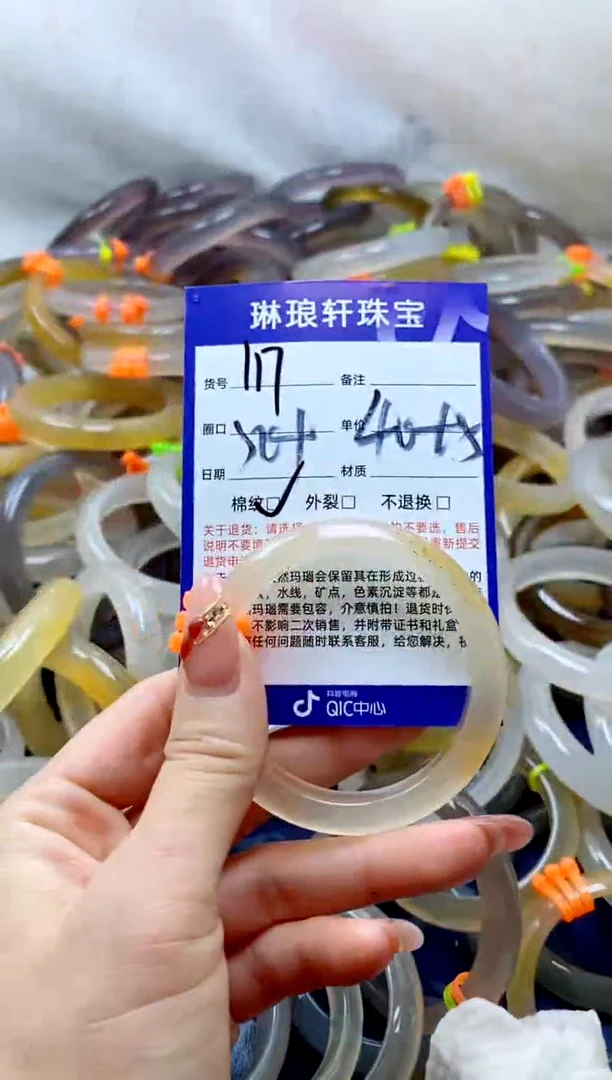 琳琅轩珠宝
货号 117 备注
圈口 单价
日期 材质
棉纹□✓ 外裂□ 不退换□
关于退货：请选择 的不要选，售后
说明不要填 重新提交
退货申
然玛瑙会保留其在形成过 的
，水线，矿点，色素沉淀等都
玛瑙需要包容，介意慎拍！退货时
不影响二次销售，并附带证书和礼盒
任何问题随时联系客服，给您解决，
抖音电商
QIC中心